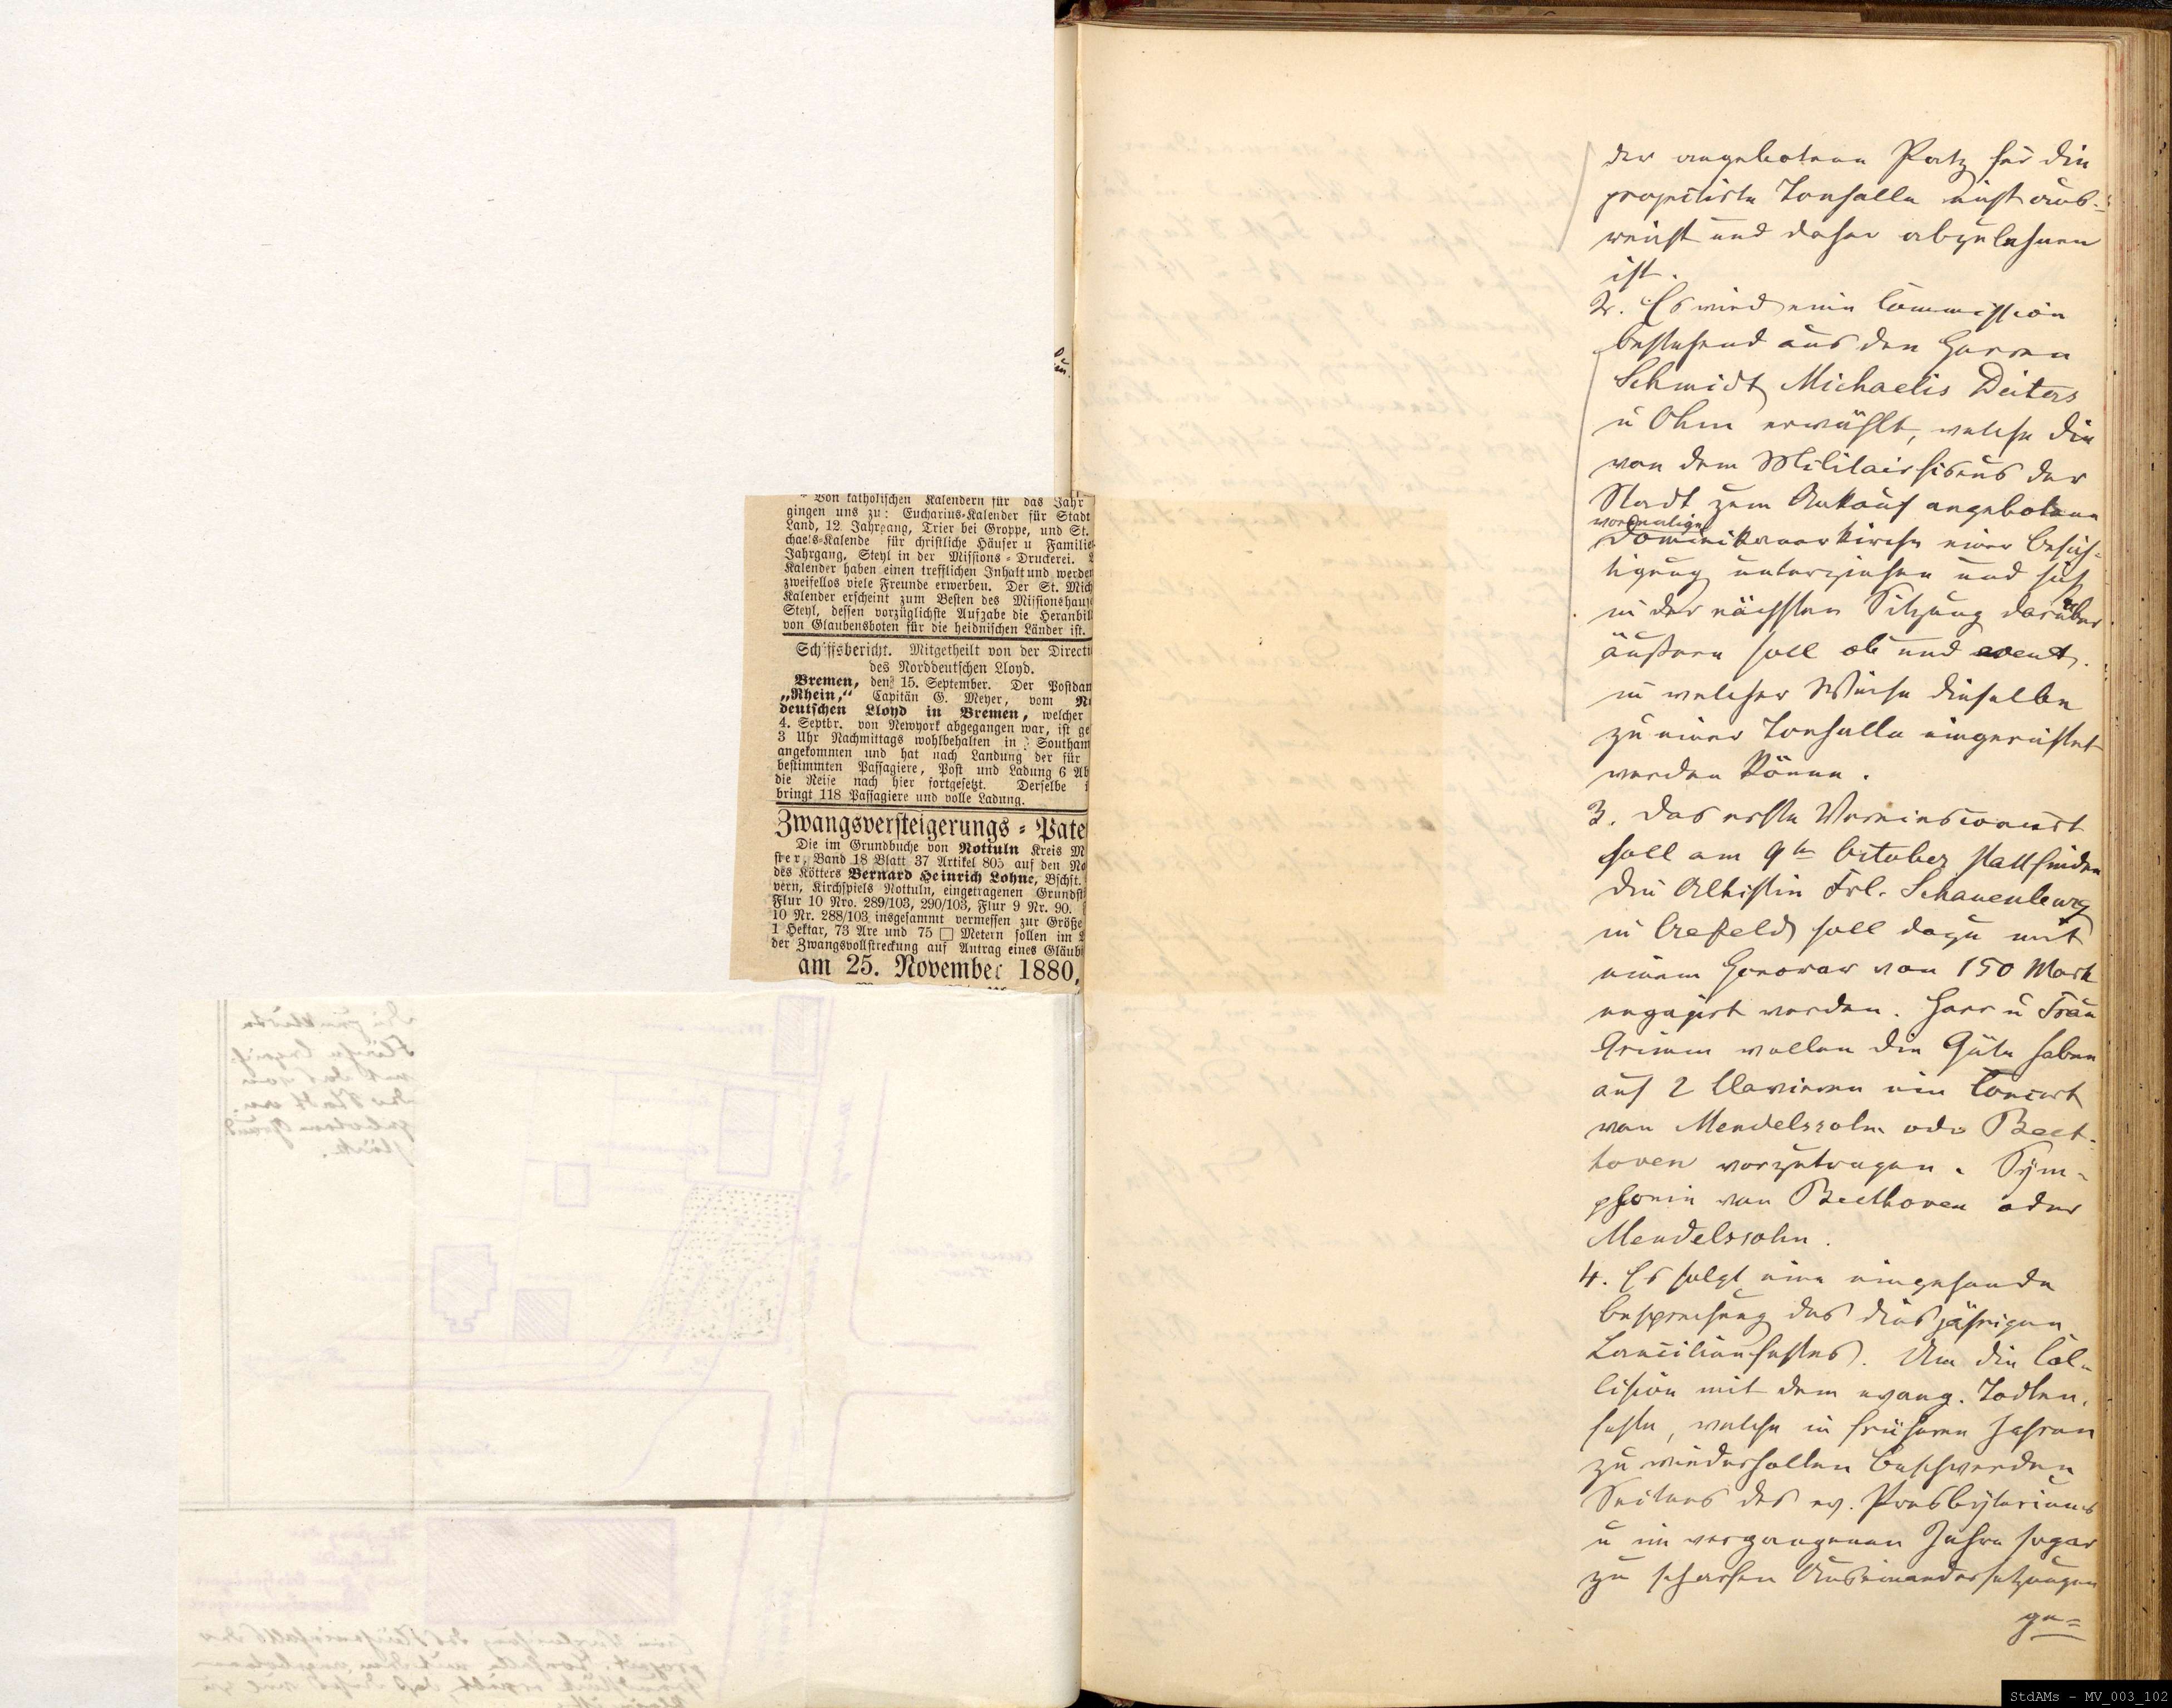 * Von katholischen Kalendern für das Jahr
gingen uns zu: Eucharius-Kalender für Stadt
Land, 12. Jahrgang, Trier bei Groppe, und St.
chaels-Kalende für christliche Häuser u Familie
Jahrgang, Steyl in der Missions-Druckerei.
Kalender haben einen trefflichen Inhalt und werden
zweifellos viele Freunde erwerben. Der St. Mich
Kalender erscheint zum Besten des Missionshaus
Steyl, dessen vorzüglichste Aufgabe die Heranbil
von Glaubensboten für die heidnischen Länder ist.
Schiffsbericht. Mitgetheilt von der Directi
des Norddeutschen Lloyd.
Bremen, den 15. September. Der Postdam
„Rhein,“ Capitän G. Meyer, vom No
deutschen Lloyd in Bremen, welcher
4. Septbr. von Newyork abgegangen war, ist ge
3 Uhr Nachmittags wohlbehalten in Southam
angekommen und hat nach Landung der für
bestimmten Passagiere, Post und Ladung 6 Ab
die Reise nach hier fortgesetzt. Derselbe
bringt 118 Passagiere und volle Ladung.
Zwangsversteigerungs-Pate
Die im Grundbuche von Nottuln Kreis M
ster, Band 18 Blatt 37 Artikel 805 auf den Na
des Kötters Bernard Heinrich Lohne, Bschst.
vern, Kirchspiels Nottuln, eingetragenen Grundst
Flur 10 Nro. 289/103, 290/103, Flur 9 Nr. 90.
10 Nr. 288/103 insgesammt vermessen zur Größe
1 Hektar, 73 Are und 75 □ Metern sollen im
der Zwangsvollstreckung auf Antrag eines Gläub
am 25. November 1880,
der angebotene Platz für die
projectirte Tonhalle nicht aus-
reicht und daher abzulehnen
ist.
2. Es wird eine Commission
bestehend aus den Herren
Schmidt Michaelis Deiters
u Ohm erwählt, welche die
von dem Militairfiscus der
Stadt zum Ankauf angebotene
vormalige
Dominikanerkirche einer Besich-
tigung unterziehen und sich
in der nächsten Sitzung darüber
äußern soll ob und event.
in welcher Weise dieselbe
zu einer Tonhalle eingerichtet
werden könne.
3. Das erste Vereinsconcert
soll am 9ten October stattfinden
Die Altistin Frl. Schauenburg
in Crefeld soll dazu mit
einem Honorar von 150 Mark
engagirt werden. Herr u Frau
Grimm wollen die Güte haben
auf 2 Clavieren ein Concert
von Mendelssohn oder Beet-
hoven vorzutragen. Sym-
phonie von Beethoven oder
Mendelssohn.
4. Es folgt eine eingehende
Besprechung des diesjährigen
Caecilienfestes. Um die Col-
lision mit dem evang. Todten-
feste, welche in früheren Jahren
zu wiederholten Beschwerden
Seitens des ev. Presbyteriums
u im vergangenen Jahre sogar
zu scharfen Auseinandersetzungen
ge=
StdAMs - MV_003_102